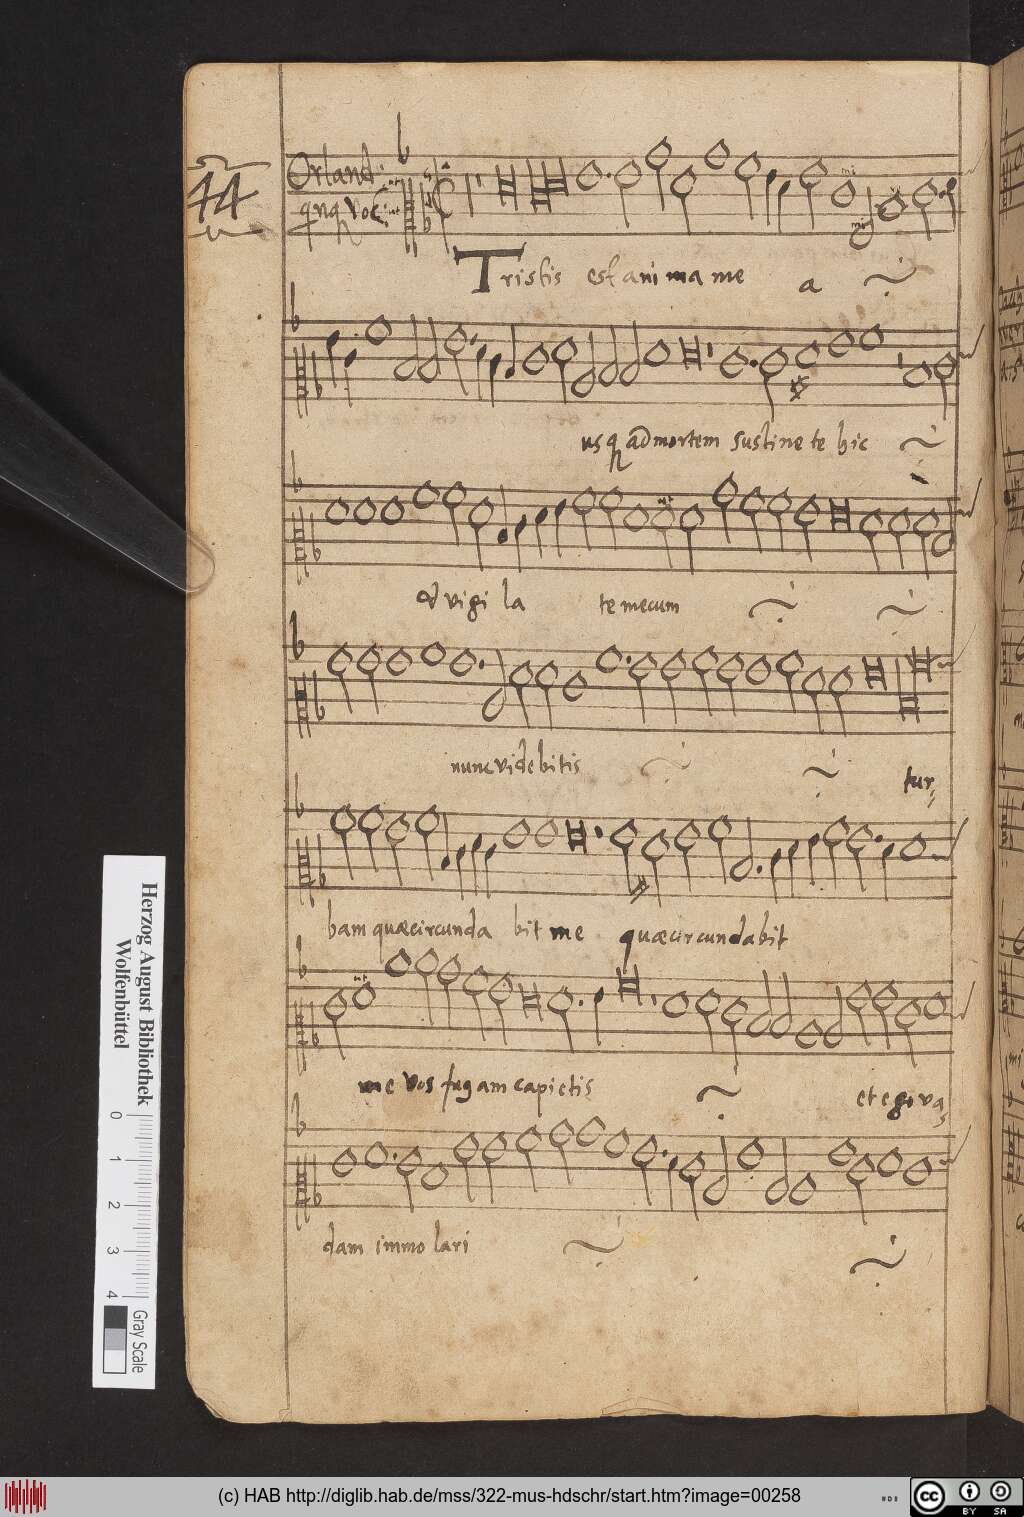 44
Orland:
qnq voc:
Tristis est anima me a
usq ad mortem sustinete hic
et vigi la te mecum
nunc videbitis
tur=
bam quæ circunda bit me quæ circundabit
me Vos fugam capietis et ego va=
dam immo lari
Herzog August Bibliothek
Wolfenbüttel
0 1 2 3 4
Gray Scale
(c) HAB http://diglib.hab.de/mss/322-mus-hdschr/start.htm?image=00258
cc BY SA